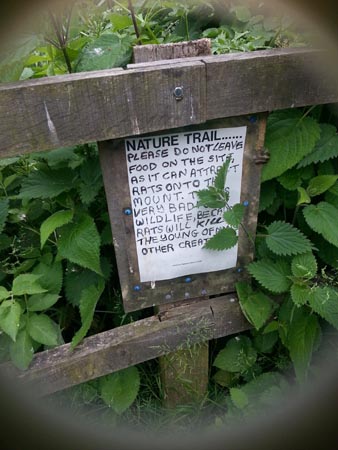 NATURE TRAIL......
PLEASE DO NOT LEAVE
FOOD ON THE SITE
AS IT CAN ATTRACT
RATS ONTO THE
MOUNT. THIS
VERY BAD
WILDLIFE, BECAU
RATS WILL KILL
THE YOUNG OF
OTHER CREAT